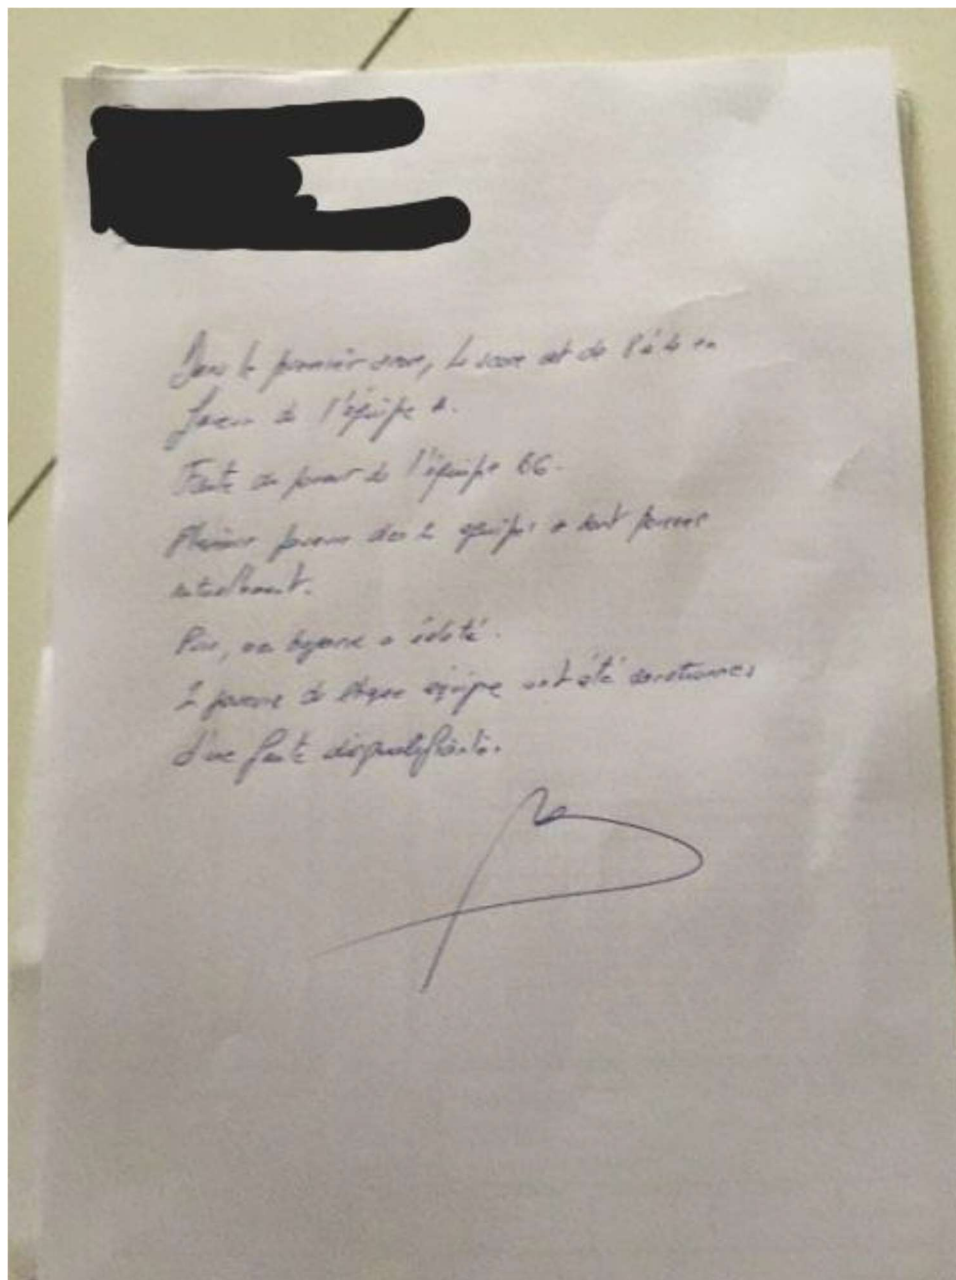 Dans le premier , le score est de en
faveur de l'équipe A.
Faute du joueur de l'équipe B6.
Plusieurs joueurs des 2 équipes se sont
mutuellement.
Puis, une bagarre a éclaté.
2 joueurs de chaque équipe ont été sanctionnés
d'une faute disqualifiante.